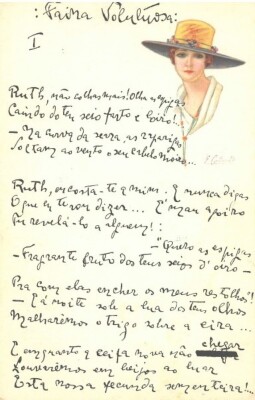 : Faina Voluptuosa:
I
Ruth, não colhas mais! Olha as espigas
Caindo do teu seio farto e loiro!..
– Na curva da serra, as raparigas
Soltam ao vento o seu cabelo moiro...
Ruth, encosta-te a mim. E nunca digas
O que eu te vou dizer...
Eu revelá-lo a alguem!:
– "Quero as espigas
– Fragrante fruto dos teus seios d'oiro –
Pra com elas encher os meus restolhos!
– E á noite sob a lua dos teus olhos
Malharêmos o trigo sobre a eira...
chegar
E enquanto a ceifa nova não
Louvarêmos em beijos ao luar
Esta nossa fecunda sementeira!...